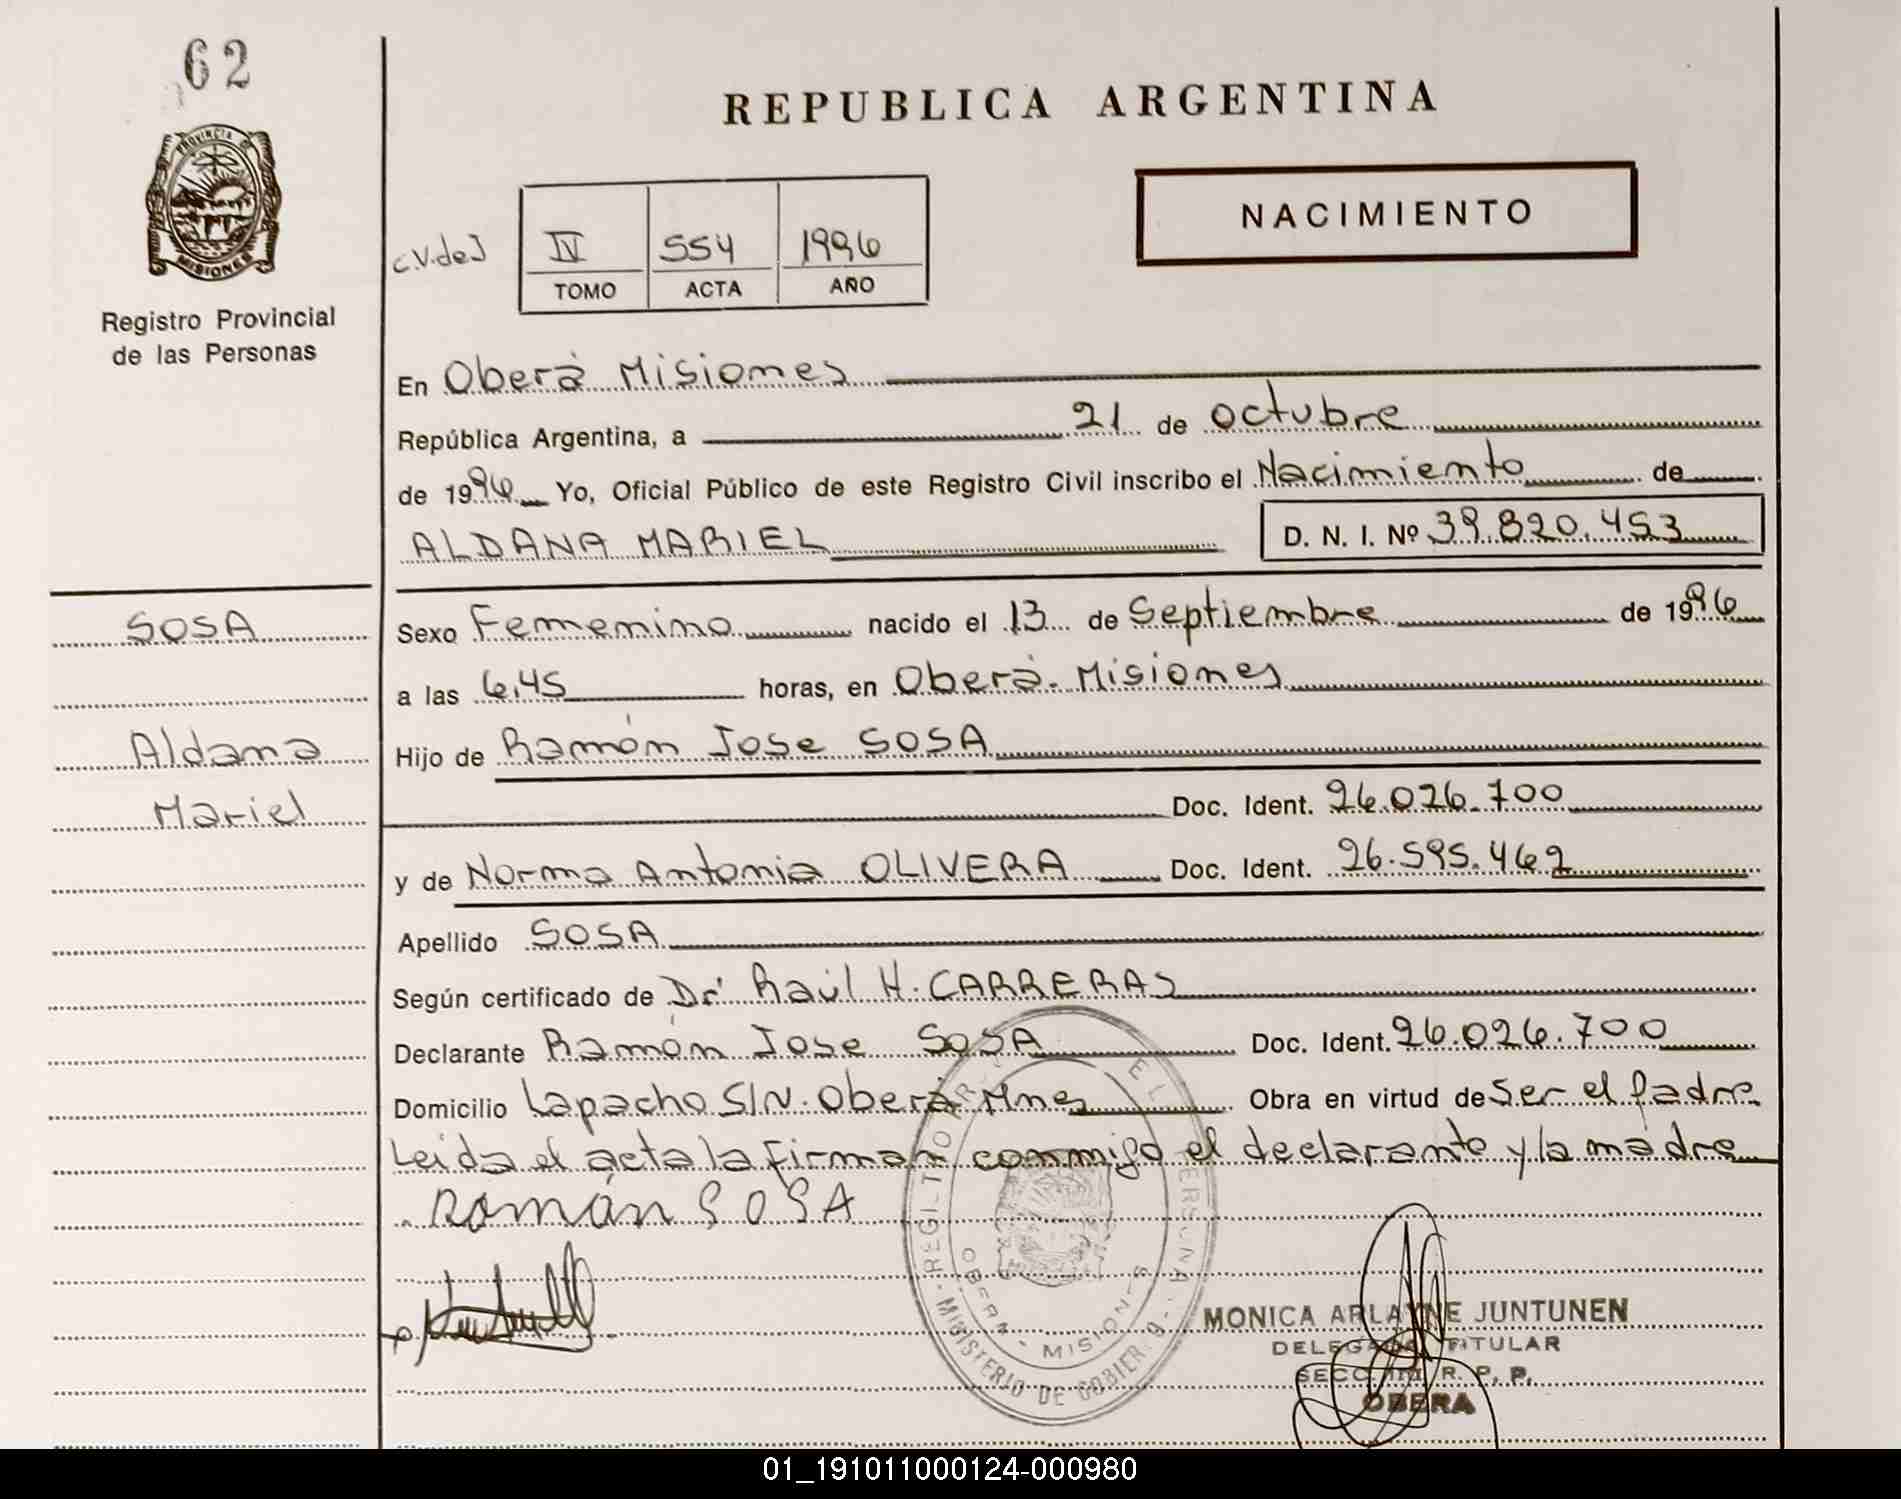 62
REPUBLICA ARGENTINA
PROVINCIA DE
MISIONES
Registro Provincial
de las Personas
NACIMIENTO
C.V.deJ
IV 554 1996
TOMO ACTA AÑO
En Oberá Misiones
República Argentina, a 21 de octubre
de 1996 Yo, Oficial Público de este Registro Civil inscribo el Nacimiento de
ALDANA MARIEL D. N. I. Nº 39.820.453
SOSA
Aldana
Mariel
Sexo Femenino nacido el 13 de Septiembre de 1996
a las 6,45 horas, en Oberá. Misiones
Hijo de Ramón Jose SOSA
Doc. Ident. 26.026.700
y de Norma Antonia OLIVERA Doc. Ident. 26.595.462
Apellido SOSA
Según certificado de Dr. Raúl H. CARRERAS
Declarante Ramón Jose SOSA Doc. Ident. 26.026.700
Domicilio Lapacho S/N. Oberá Mnes Obra en virtud de Ser el Padre
Leida el acta la firman conmigo el declarante y la madre
Román SOSA
OBERA - MISIONES
MINISTERIO DE GOBIERNO
MONICA ARLAYNE JUNTUNEN
DELEGADO TITULAR
SECC. R. P. P.
OBERA
01_191011000124-000980